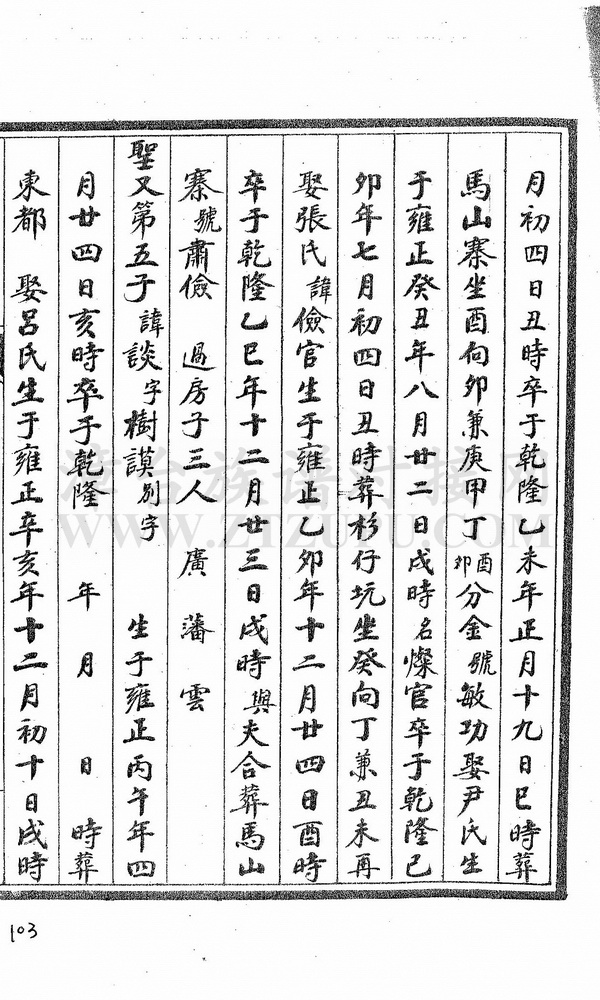 月初四日丑時卒于乾隆乙未年正月十九日巳時葬
馬山寨坐酉向卯兼庚甲丁酉卯分金號敏功娶尹氏生
于雍正癸丑年八月廿二日戌時名燦官卒于乾隆己
卯年七月初四日丑時葬杉仔坑坐癸向丁兼丑未再
娶張氏諱儉官生于雍正乙卯年十二月廿四日酉時
卒于乾隆乙巳年十二月廿三日戌時與夫合葬馬山
寨號肅儉 過房子三人 廣 藩 雲
聖又第五子諱談字樹謨別字 生于雍正丙午年四
月廿四日亥時卒于乾隆 年 月 日 時葬
東都 娶呂氏生于雍正辛亥年十二月初十日戌時
103
漳台族谱对接网
WWW.ZTZUPU.COM